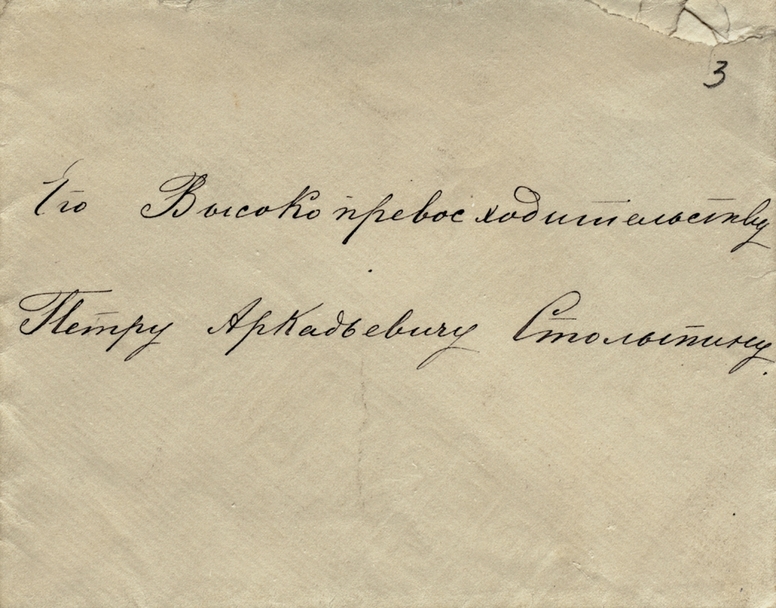 3
Его Высокопревосходительству
Петру Аркадьевичу Столыпину.